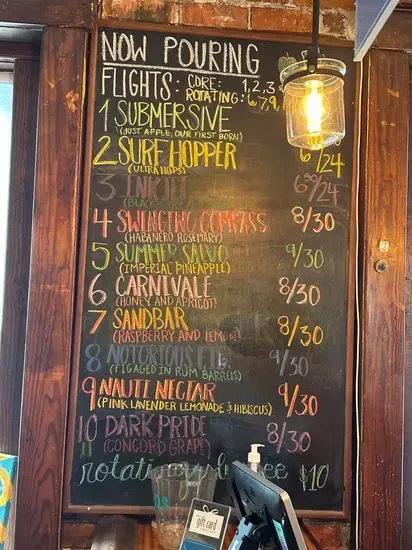 NOW POURING
FLIGHTS: CORE: 1, 2, 3
ROTATING: 6, 7, 9, 1
1 SUBMERSIVE
(JUST APPLE, OUR FIRST BORN)
2 SURF HOPPER /24
(ULTRA HOPS)
3 INK 6⁵⁰/24
4 SWINGING COMPASS 8/30
(HABANERO ROSEMARY)
5 SUMMER SALVO 9/30
(IMPERIAL PINEAPPLE)
6 CARNIVALE 8/30
(HONEY AND APRICOT)
7 SANDBAR 8/30
(RASPBERRY AND LEMON)
8 NOTORIOUS F.I.G. 9/30
(FIG AGED IN RUM BARRELS)
9 NAUTI NECTAR 9/30
(PINK LAVENDER LEMONADE & HIBISCUS)
10 DARK PRIDE 8/30
(CONCORD GRAPE)
11 rotating $10
gift card